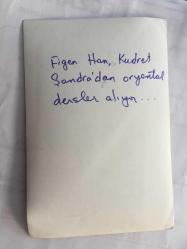 Figen Han, Kudret
Şandra'dan oryantal
dersler alıyor...